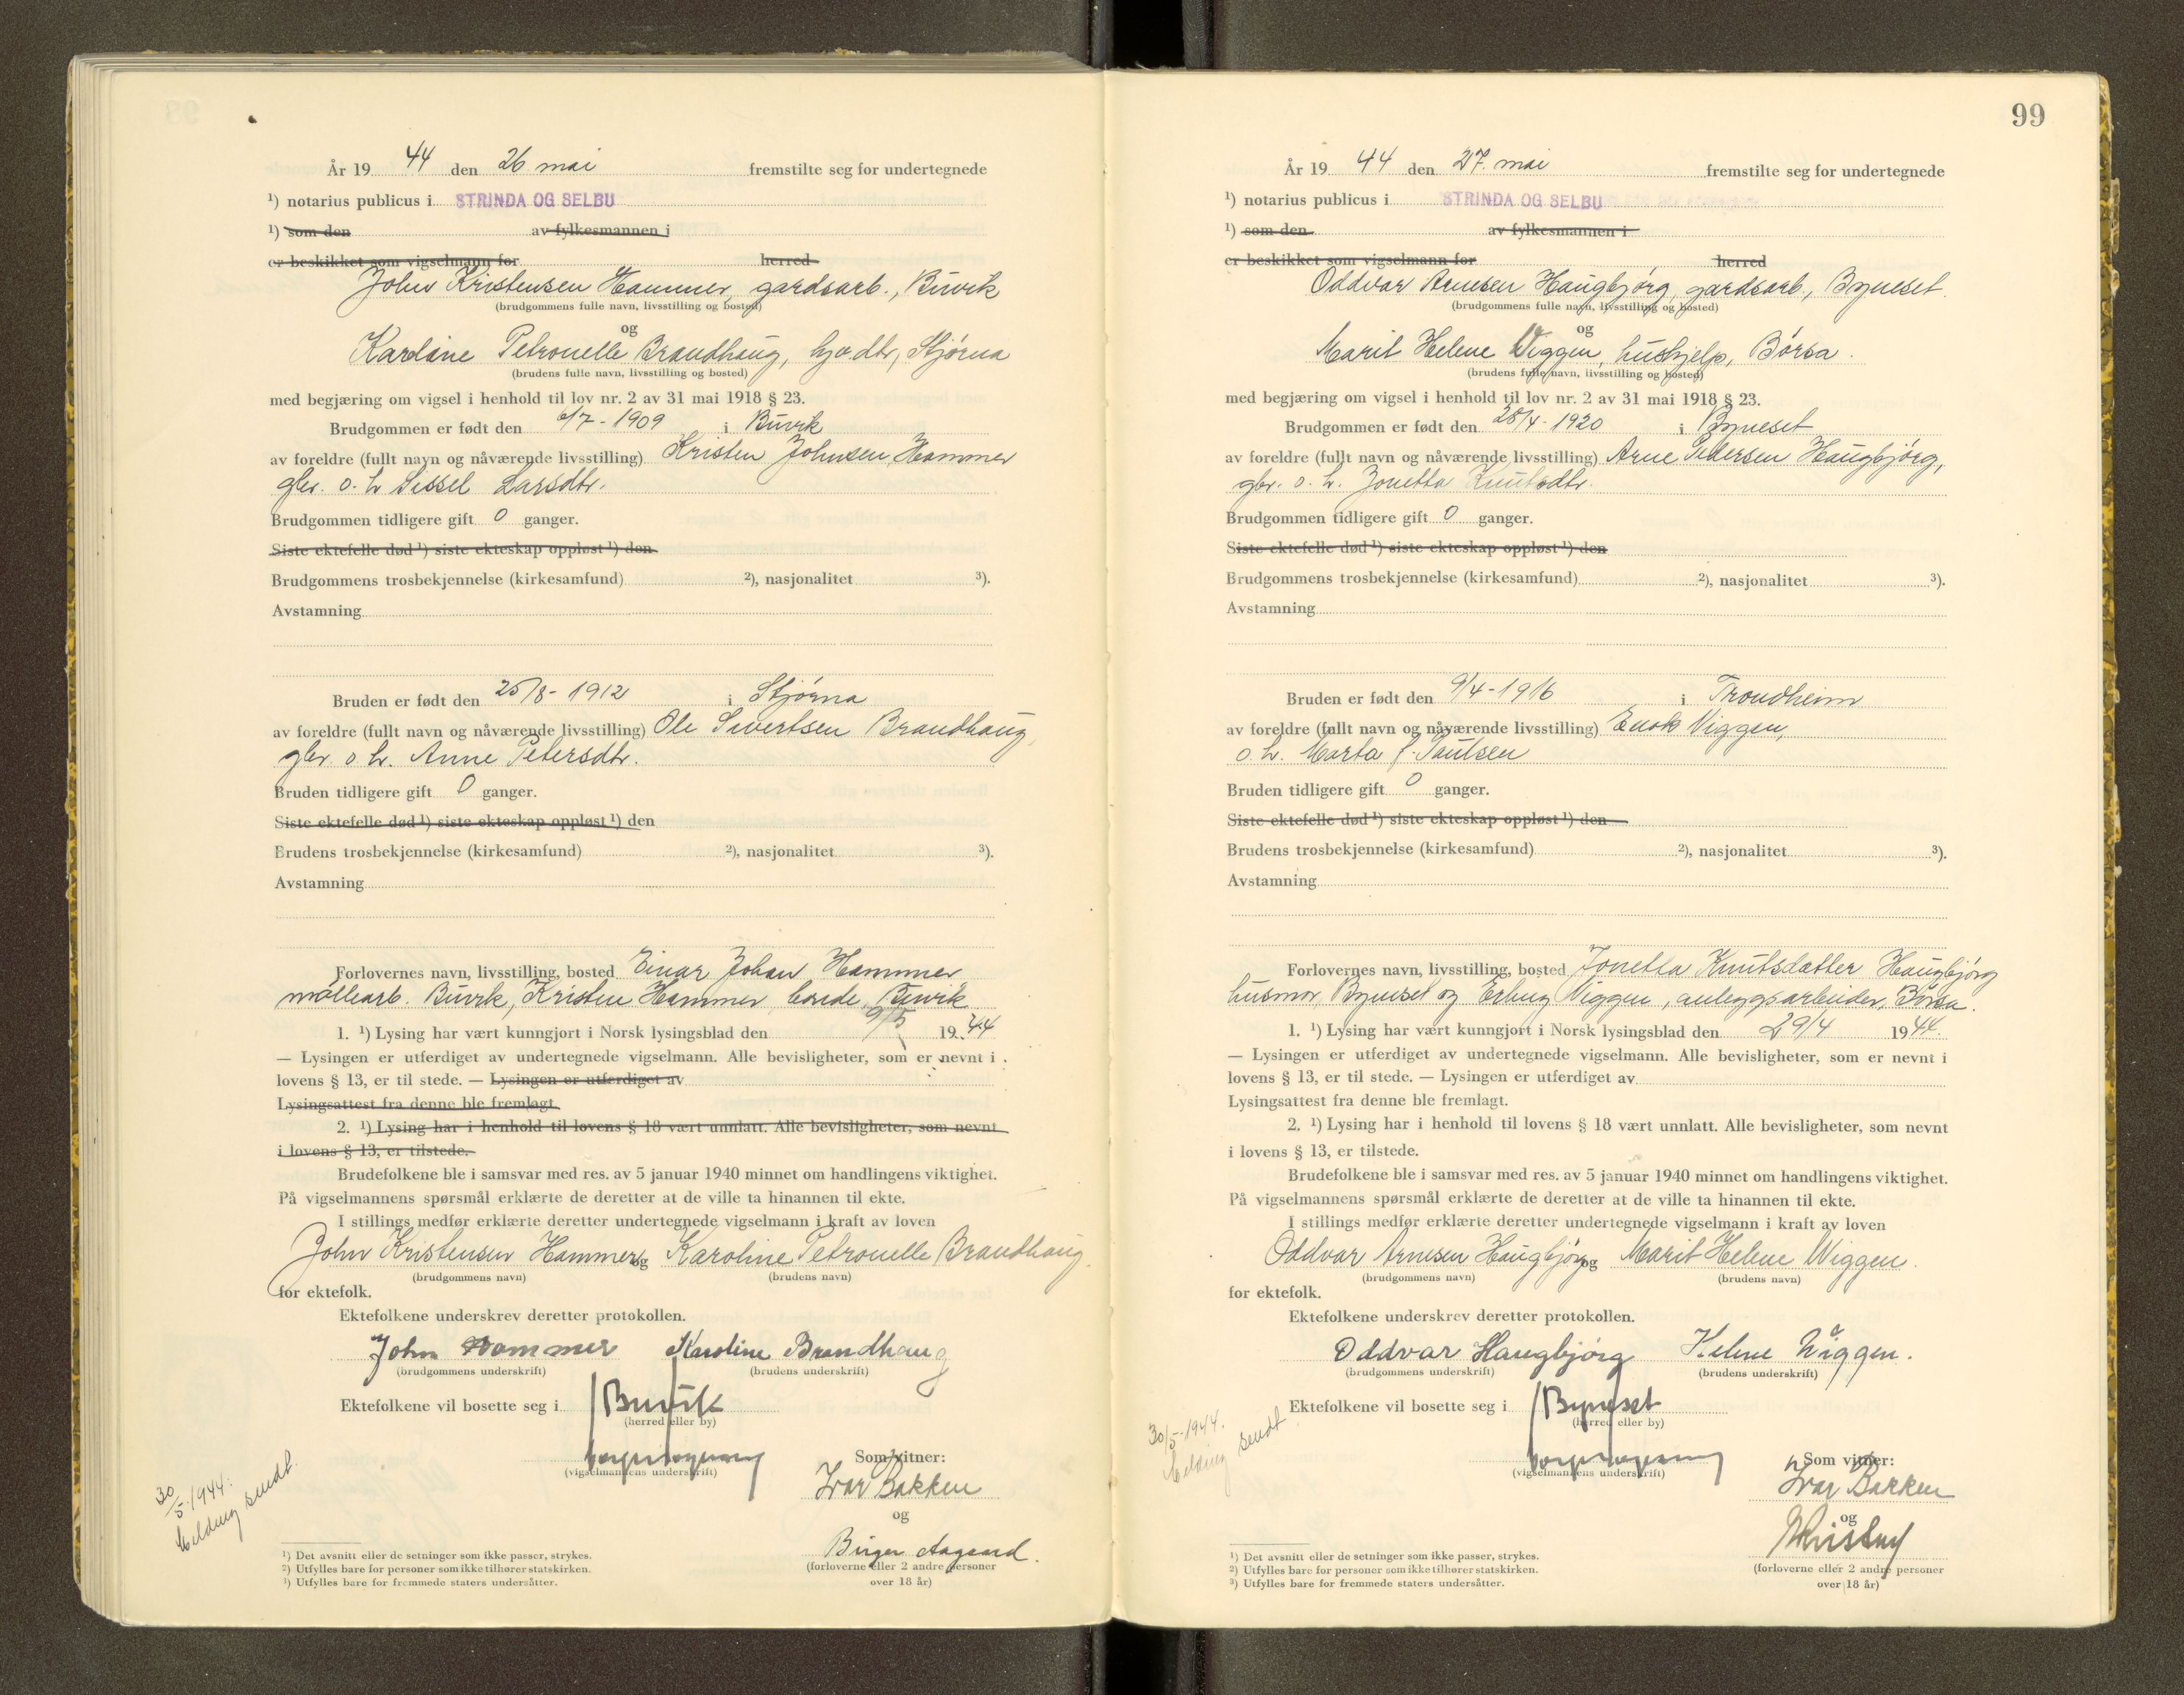 År 19 44 den 26 mai fremstilte seg for undertegnede
¹) notarius publicus i STRINDA OG SELBU
¹) som den av fylkesmannen i
er beskikket som vigselmann for herred
John Kristensen Hammer, gardsarb., Buvik
(brudgommens fulle navn, livsstilling og bosted)
og
Karoline Petronelle Brandhaug, hj.v. dtr, Stjørna
(brudens fulle navn, livsstilling og bosted)
med begjæring om vigsel i henhold til lov nr. 2 av 31 mai 1918 § 23.
Brudgommen er født den 6/7 - 1909 i Buvik
av foreldre (fullt navn og nåværende livsstilling) Kristen Johnsen Hammer
gbr. o. h. Sissel Larsdtr.
Brudgommen tidligere gift 0 ganger.
Siste ektefelle død ¹) siste ekteskap oppløst ¹) den
Brudgommens trosbekjennelse (kirkesamfund) ²), nasjonalitet ³).
Avstamning
Bruden er født den 25/8 - 1912 i Stjørna
av foreldre (fullt navn og nåværende livsstilling) Ole Sivertsen Brandhaug,
gbr. o. h. Anne Petersdtr.
Bruden tidligere gift 0 ganger.
Siste ektefelle død ¹) siste ekteskap oppløst ¹) den
Brudens trosbekjennelse (kirkesamfund) ²), nasjonalitet ³).
Avstamning
Forlovernes navn, livsstilling, bosted Einar Johan Hammer
møllearb. Buvik, Kristen Hammer, bonde, Buvik
1. ¹) Lysing har vært kunngjort i Norsk lysingsblad den 9/5 19 44
— Lysingen er utferdiget av undertegnede vigselmann. Alle bevisligheter, som er nevnt i
lovens § 13, er til stede. — Lysingen er utferdiget av
Lysingsattest fra denne ble fremlagt
2. ¹) Lysing har i henhold til lovens § 18 vært unnlatt. Alle bevisligheter, som nevnt
i lovens § 13, er tilstede.
Brudefolkene ble i samsvar med res. av 5 januar 1940 minnet om handlingens viktighet.
På vigselmannens spørsmål erklærte de deretter at de ville ta hinannen til ekte.
I stillings medfør erklærte deretter undertegnede vigselmann i kraft av loven
John Kristensen Hammer og Karoline Petronelle Brandhaug
(brudgommens navn) (brudens navn)
for ektefolk.
Ektefolkene underskrev deretter protokollen.
John Hammer Karoline Brandhaug
(brudgommens underskrift) (brudens underskrift)
Ektefolkene vil bosette seg i Buvik
(herred eller by)
(vigselmannens underskrift)
Som vitner:
Ivar Bakken
og
Birger Aagaard.
(forloverne eller 2 andre personer
over 18 år)
30/5-1944.
Melding sendt.
¹) Det avsnitt eller de setninger som ikke passer, strykes.
²) Utfylles bare for personer som ikke tilhører statskirken.
³) Utfylles bare for fremmede staters undersåtter.
99
År 19 44 den 27. mai fremstilte seg for undertegnede
¹) notarius publicus i STRINDA OG SELBU
¹) som den av fylkesmannen i
er beskikket som vigselmann for herred
Oddvar Arnesen Haugbjørg, gardsarb., Byneset.
(brudgommens fulle navn, livsstilling og bosted)
og
Marit Helene Wiggen, hushjelp, Børsa.
(brudens fulle navn, livsstilling og bosted)
med begjæring om vigsel i henhold til lov nr. 2 av 31 mai 1918 § 23.
Brudgommen er født den 28/4 - 1920 i Byneset
av foreldre (fullt navn og nåværende livsstilling) Arne Pedersen Haugbjørg,
gbr. o. h. Jonetta Knutsdtr.
Brudgommen tidligere gift 0 ganger.
Siste ektefelle død ¹) siste ekteskap oppløst ¹) den
Brudgommens trosbekjennelse (kirkesamfund) ²), nasjonalitet ³).
Avstamning
Bruden er født den 9/4 - 1916 i Trondheim
av foreldre (fullt navn og nåværende livsstilling) Enok Viggen,
o. h. Marta f. Paulsen
Bruden tidligere gift 0 ganger.
Siste ektefelle død ¹) siste ekteskap oppløst ¹) den
Brudens trosbekjennelse (kirkesamfund) ²), nasjonalitet ³).
Avstamning
Forlovernes navn, livsstilling, bosted Jonetta Knutsdatter Haugbjørg
husmor, Byneset og Erling Viggen, anleggsarbeider, Børsa.
1. ¹) Lysing har vært kunngjort i Norsk lysingsblad den 29/4 19 44.
— Lysingen er utferdiget av undertegnede vigselmann. Alle bevisligheter, som er nevnt i
lovens § 13, er til stede. — Lysingen er utferdiget av
Lysingsattest fra denne ble fremlagt.
2. ¹) Lysing har i henhold til lovens § 18 vært unnlatt. Alle bevisligheter, som nevnt
i lovens § 13, er tilstede.
Brudefolkene ble i samsvar med res. av 5 januar 1940 minnet om handlingens viktighet.
På vigselmannens spørsmål erklærte de deretter at de ville ta hinannen til ekte.
I stillings medfør erklærte deretter undertegnede vigselmann i kraft av loven
Oddvar Arnesen Haugbjørg og Marit Helene Wiggen.
(brudgommens navn) (brudens navn)
for ektefolk.
Ektefolkene underskrev deretter protokollen.
Oddvar Haugbjørg Helene Wiggen.
(brudgommens underskrift) (brudens underskrift)
Ektefolkene vil bosette seg i Byneset
(herred eller by)
(vigselmannens underskrift)
Som vitner:
Ivar Bakken
og
(forloverne eller 2 andre personer
over 18 år)
30/5-1944.
Melding sendt
¹) Det avsnitt eller de setninger som ikke passer, strykes.
²) Utfylles bare for personer som ikke tilhører statskirken.
³) Utfylles bare for fremmede staters undersåtter.